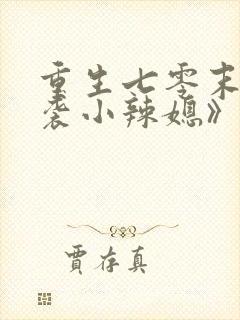 重生七零末
袭小辣媳》
贾存真